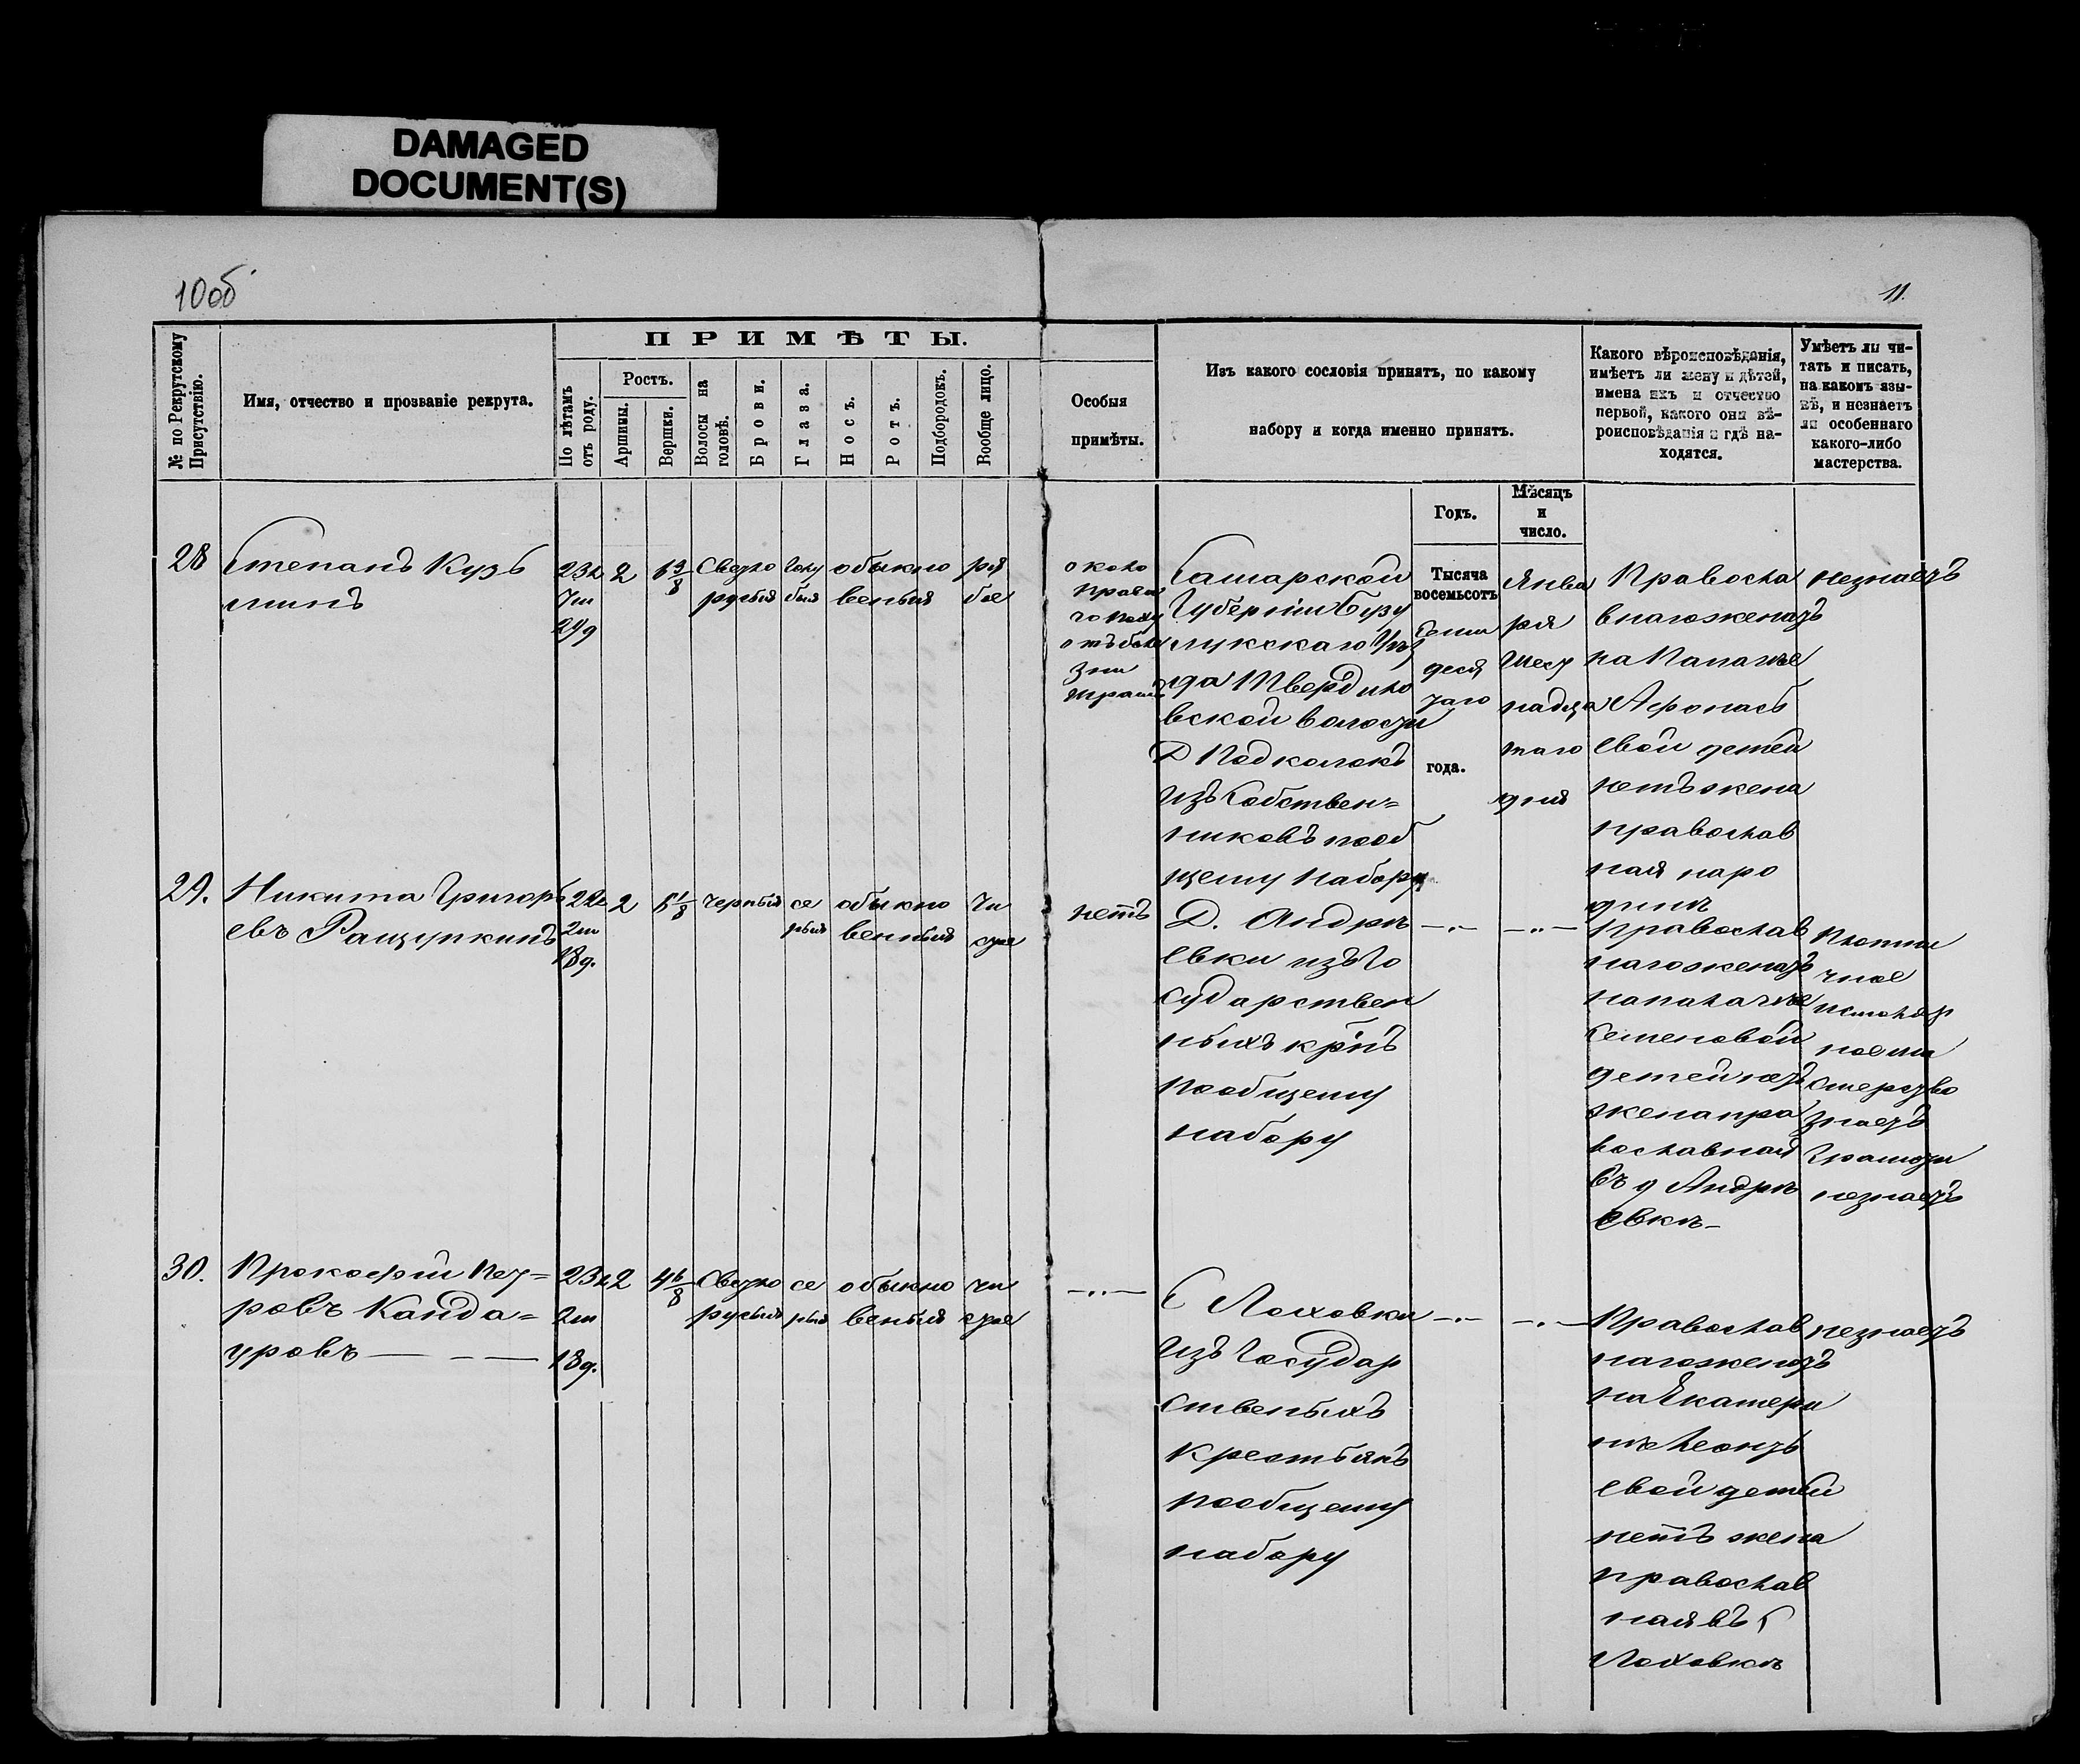 DAMAGED
DOCUMENT(S)
10об
11.
№ по Рекрутскому
Присутствію.
Имя, отчество и прозваніе рекрута.
ПРИМѢТЫ.
По лѣтамъ
отъ роду.
Ростъ.
Аршины.
Вершки.
Волосы на
головѣ.
Брови.
Глаза.
Носъ.
Ротъ.
Подбородокъ.
Вообще лицо.
Особыя
примѣты.
Изъ какого сословія принятъ, по какому
набору и когда именно принятъ.
Какого вѣроисповѣданія,
имѣетъ ли жену и дѣтей,
имена ихъ и отчество
первой, какого они вѣ-
роисповѣданія и гдѣ на-
ходятся.
Умѣетъ ли чи-
тать и писать,
на какомъ язы-
кѣ, и незнаетъ
ли особеннаго
какого-либо
мастерства.
Годъ.
Мѣсяцъ
и
число.
28
Степанъ Кузь
минъ
23л
7м
2
Светло
русыя
голу
быя
обыкно
веныя
ря
бое
около
праваго
отъ
Самарской
Губерніи Бузу
лукскаго Уѣз
да Твердило
вской волости
Д Подколокъ
изъ Собствен=
никовъ пооб
щему набору
Тысяча
восемьсотъ
Семи
деся
таго
года.
Янва
ря
Шест
надца
таго
дня
Правосла
внагоженатъ
на Палагѣе
Афонась
евой детей
нетъ жена
православ
ная наро
динѣ
незнаетъ
29.
Никита Григорь
евъ Ращупкинъ
22л
2м
18д.
2
6 1/8
черныя
се
рыя
обыкно
венныя
чи
стое
нетъ
Д. Андрѣ
евки изъ Го
сударствен
ныхъ крпъ
пообщему
набору
—··—
—··—
Православ
нагоженатъ
напалагѣе
Семеновой
детей нетъ
жена пра
вославная
въ д Андрѣ
евкѣ—
Плотни
чное
мастерство
знаетъ
Грамоти
незнаетъ
30.
Прокофій Пет=
ровъ Кайда=
уровъ — — —
23л
2м
18д.
2
Светло
русыя
се
рыя
обыкно
веныя
чи
стое
—··—
С Лоховки
изъ Государ
ственыхъ
крестьянъ
пообщему
набору
—··—
—··—
Православ
нагоженатъ
на Екатери
нѣ Леонть
евой детей
нетъ жена
православ
ная въ С
Лоховкѣ
незнаетъ